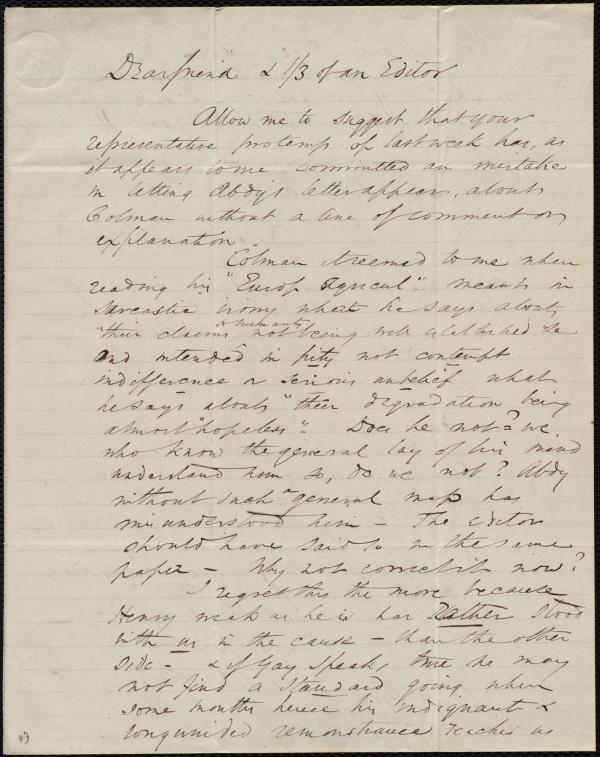 Dear friend & 1/3 of an Editor
Allow me to suggest that your
representative protemp of last week has, as
it appears to me committed an mistake
in letting Abdy's letter appear, about
Colman without a line of comment or
explanation.
Colman seemed to me when
reading his "Europ Agricul" meant in
sarcastic irony what he says about
to humanity
"their claims not being well established" &c
and intended in pity not contempt
indifference or serious unbelief what
he says about "their degradation being
almost "hopeless". Does he not? = we
who know the general lay of his mind
understand him so, do we not? Abdy
without such "general map has
misunderstood him - The editor
should have said so in the same
paper - Why not correct it now?
I regret this the more because
Henry weak as he is has Rather stood
with us in the cause - than the other
side - & if Gay speaks true he may
not find a standard going when
some months hence his indignant &
longwinded remonstrance reaches us
43